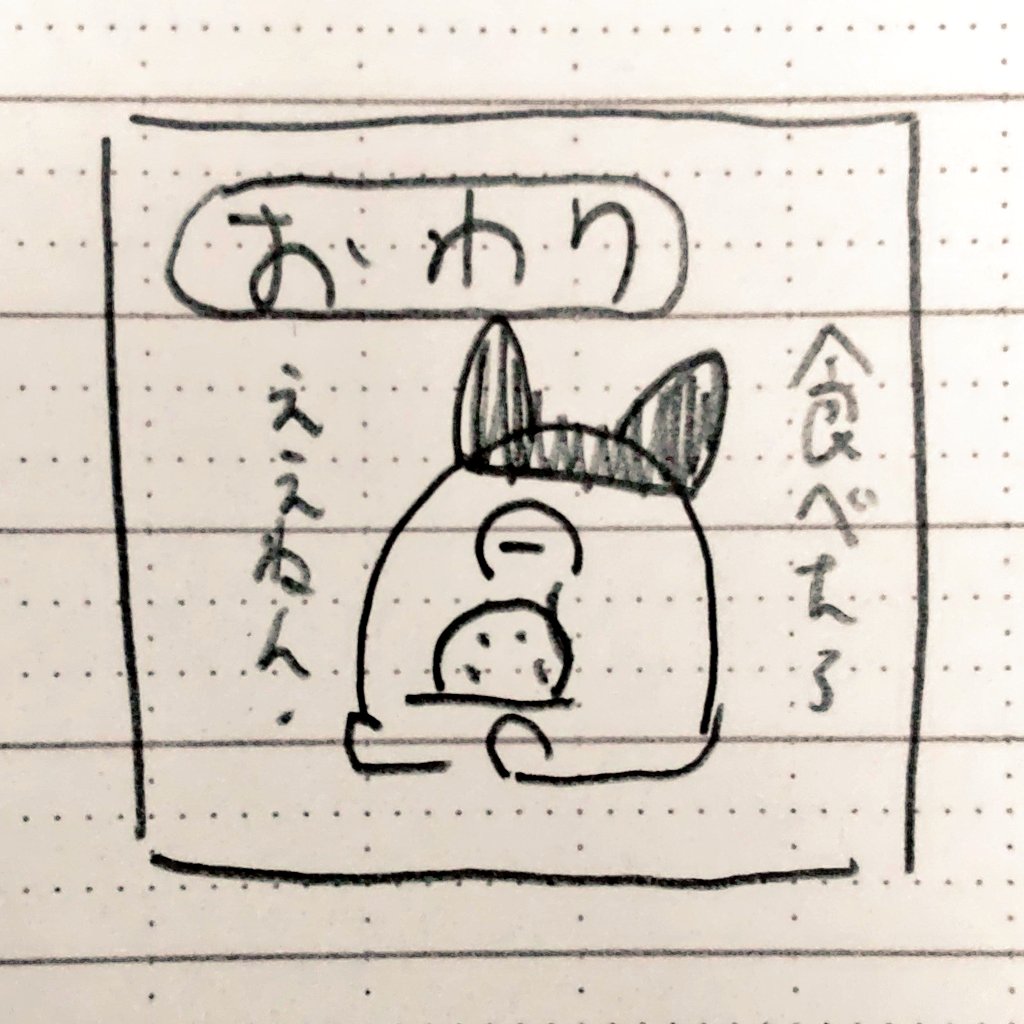 おわり
食べちろ
ええねん.